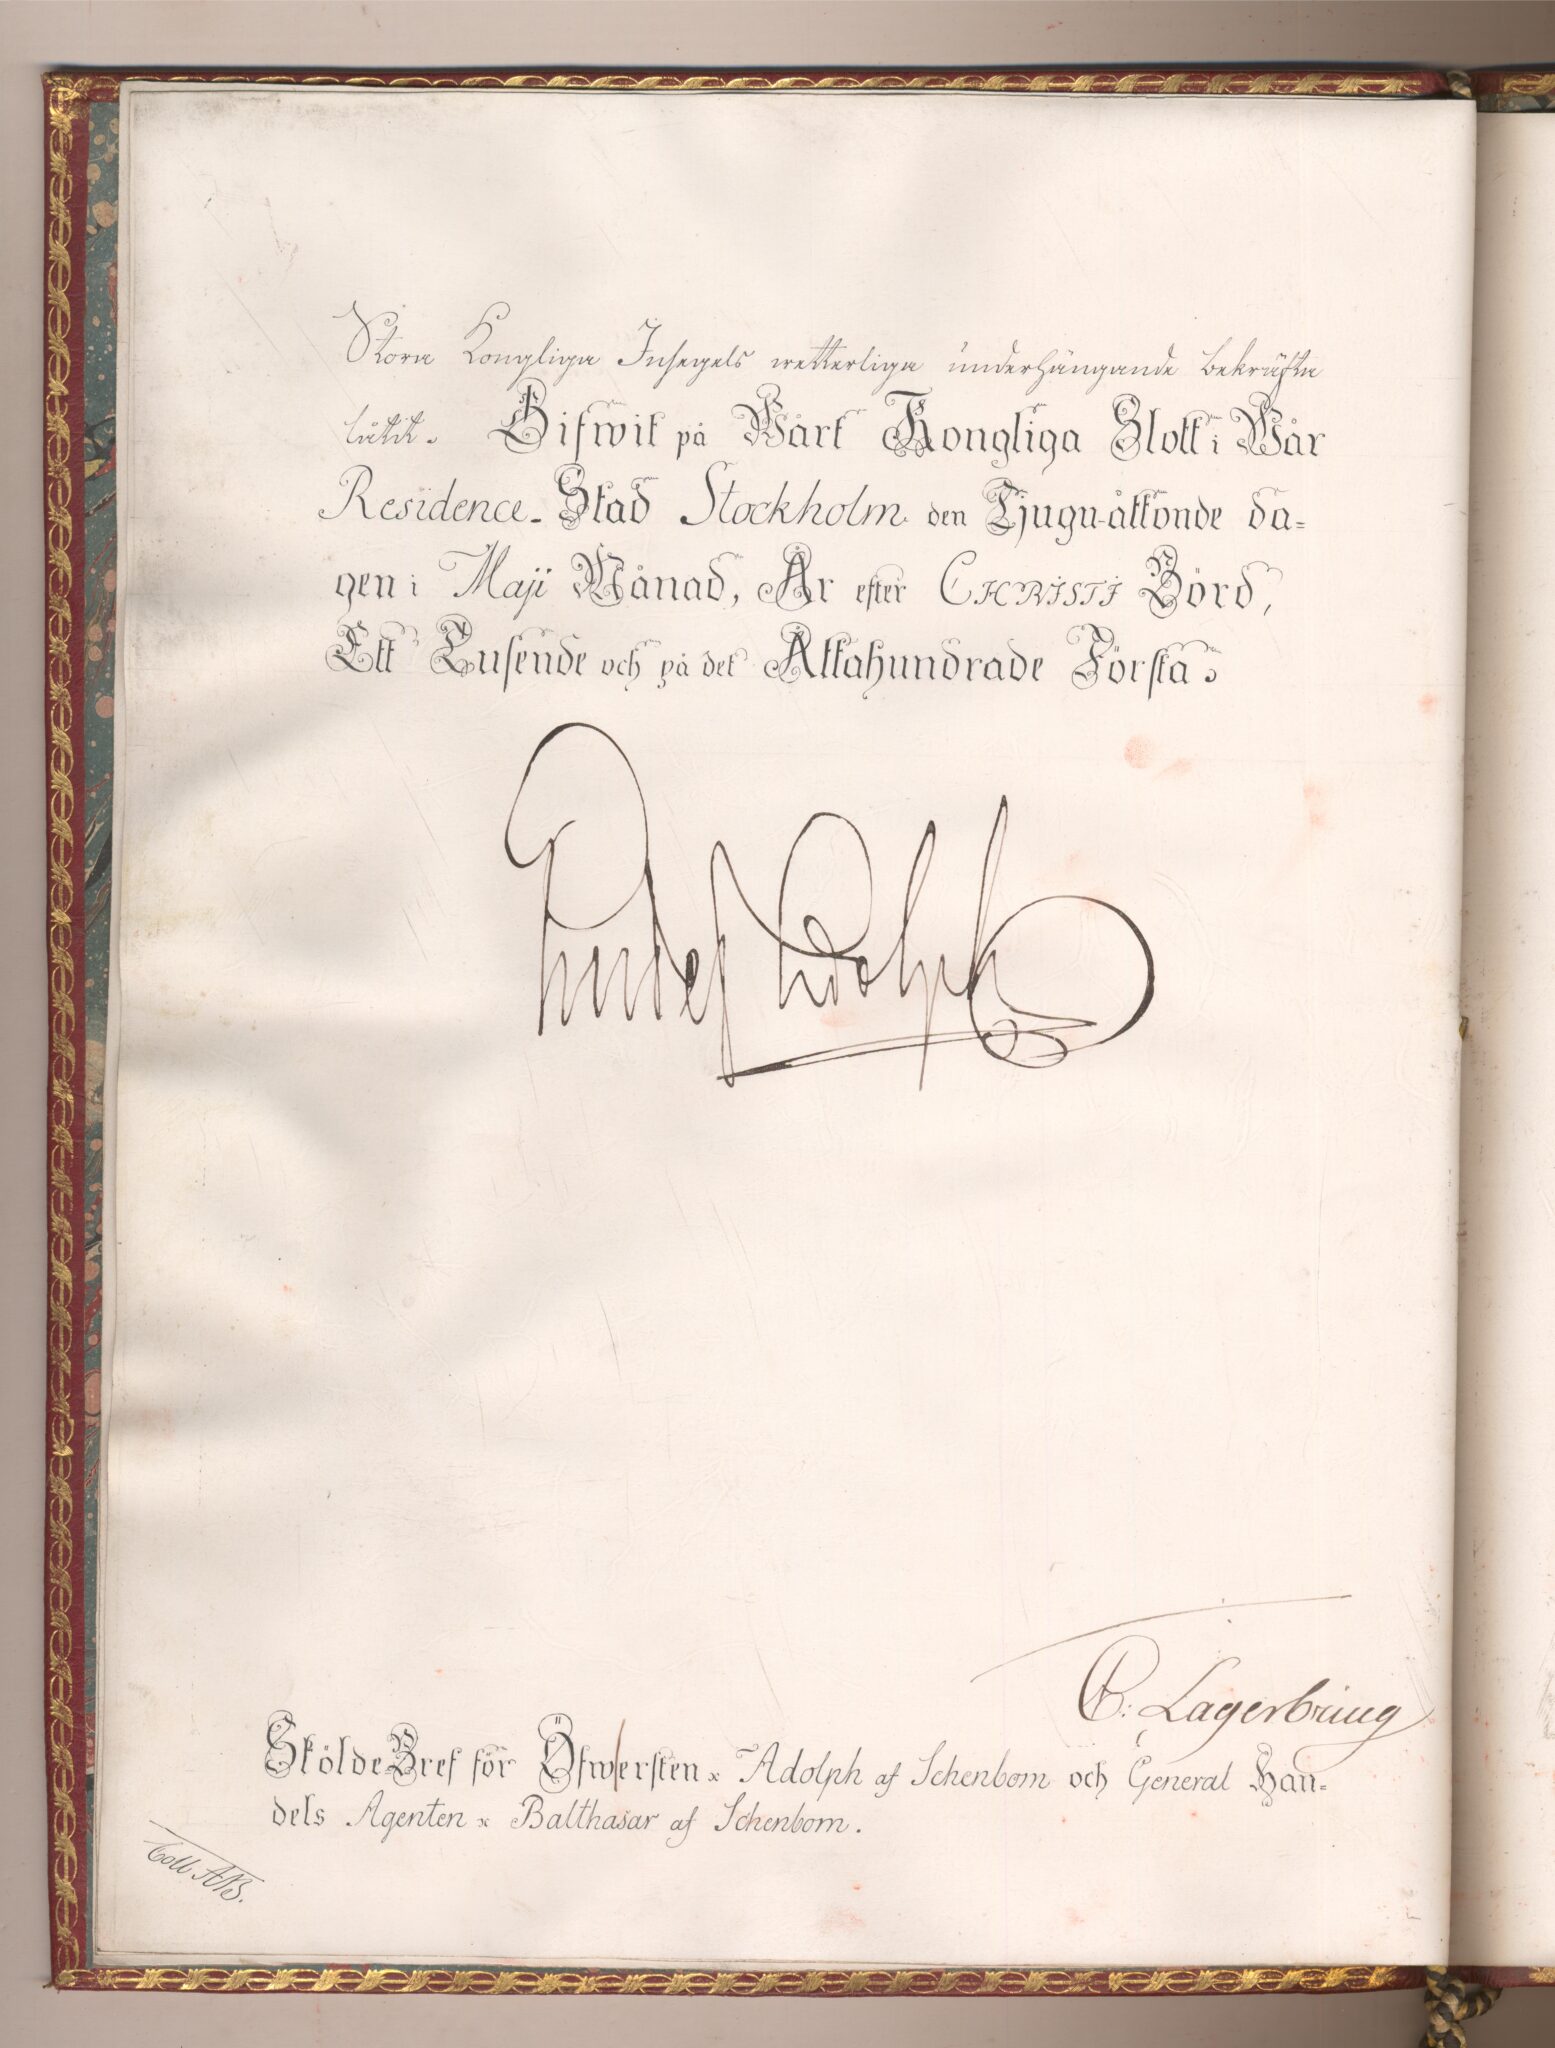 Stora Kongliga Insegels wetterliga underhängande bekräfta
låtit. Gifwit på Wårt Kongliga Slott i Wår
Residence-Stad Stockholm den Tjugu-åttonde da=
gen i Maji Månad, År efter CHRISTI Börd,
Ett Tusende och på det Attahundrade Första.
Gustaf Adolph
C. Lagerbring
Skölde-Bref för Öfwersten Adolph af Schenbom och General Han=
dels Agenten Balthasar af Schenbom.
Coll. AB.